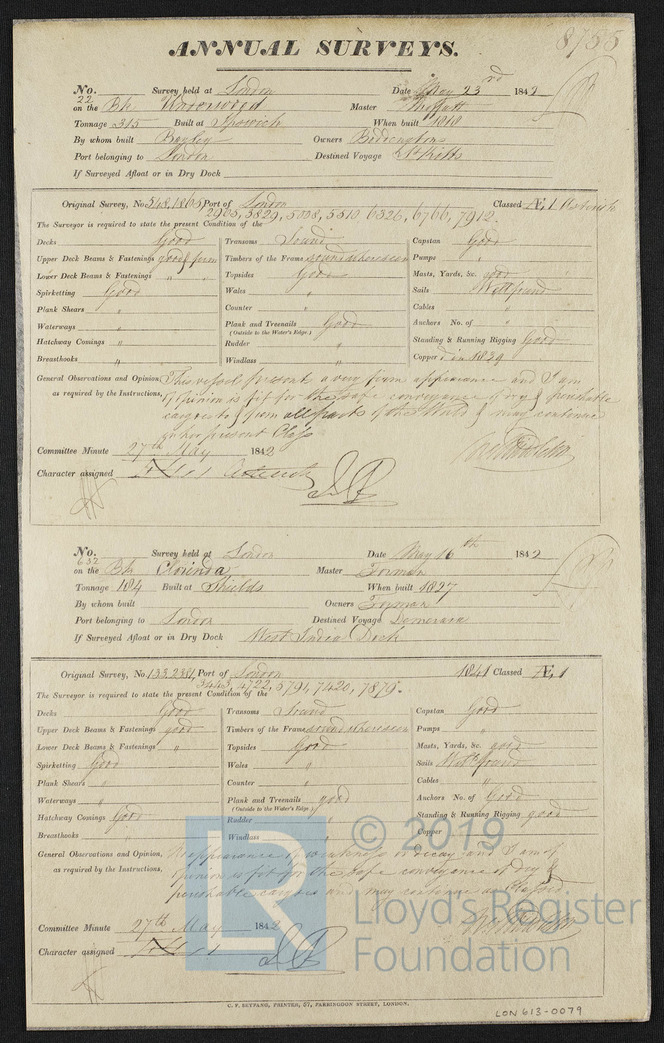 8755
ANNUAL SURVEYS.
No. 22 Survey held at London Date May 23rd 1842
on the Bk Master Moffatt
Tonnage 315 Built at Ipswich When built 1810
By whom built Bayley Owners
Port belonging to London Destined Voyage St Kitts
If Surveyed Afloat or in Dry Dock
Original Survey, No 548, 1865 Port of London Classed Æ1
2965, 5829, 5008, 5510, 6326, 6766, 7912.
The Surveyor is required to state the present Condition of the
Decks Good Transoms Sound Capstan Good
Upper Deck Beams & Fastenings good & firm Timbers of the Frame sound where seen Pumps "
Lower Deck Beams & Fastenings " " Topsides Good Masts, Yards, &c. good
Spirketting Good Wales " Sails Well found
Plank Shears " Counter " Cables "
Waterways " Plank and Treenails Good Anchors No. of "
(Outside to the Water's Edge.)
Hatchway Comings " Rudder " Standing & Running Rigging Good
Breasthooks " Windlass " Copper in 1839
General Observations and Opinion, This vessel presents a very firm appearance and I am
as required by the Instructions, of opinion is fit for the safe conveyance of dry & perishable
cargoes to & from all parts of the World & may continue
in her present Class
Committee Minute 27th May 1842
Character assigned
No. 632 Survey held at London Date May 16th 1842
on the Bk Clorinda Master Forman
Tonnage 184 Built at Shields When built 1827
By whom built Owners Forman
Port belonging to London Destined Voyage Demerara
If Surveyed Afloat or in Dry Dock West India Dock
Original Survey, No 133, 2381, Port of London 1841 Classed Æ1
3443, 4722, 5791, 7420, 7879.
The Surveyor is required to state the present Condition of the
Decks Good Transoms Sound Capstan Good
Upper Deck Beams & Fastenings good Timbers of the Frame sound where seen Pumps "
Lower Deck Beams & Fastenings " Topsides Good Masts, Yards, &c. good
Spirketting Good Wales " Sails Well found
Plank Shears " Counter " Cables "
Waterways " Plank and Treenails good Anchors No. of Good
(Outside to the Water's Edge.)
Hatchway Comings Good Rudder Standing & Running Rigging good
Breasthooks " Windlass " Copper
General Observations and Opinion, No appearance of weakness or decay and I am of
as required by the Instructions, opinion is fit for the safe conveyance of dry &
perishable cargoes and may continue as Classed
Committee Minute 27th May 1842
Character assigned
© 2019
LR
Lloyd's Register
Foundation
C. F. SEYFANG, PRINTER, 57, FARRINGDON STREET, LONDON.
LON613-0079